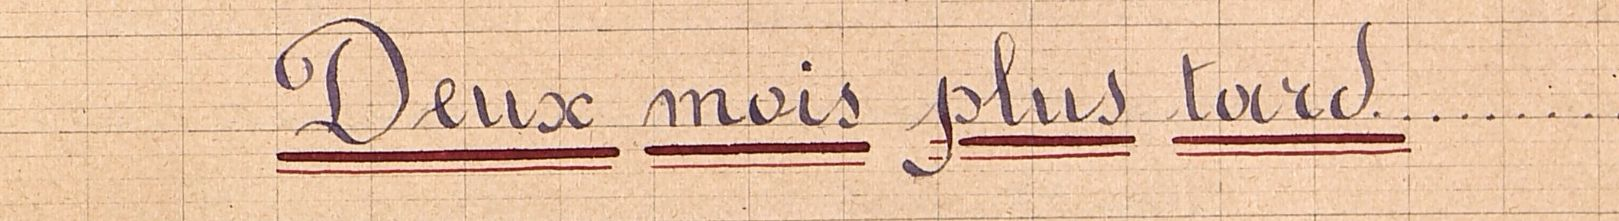 Deux mois plus tard..........